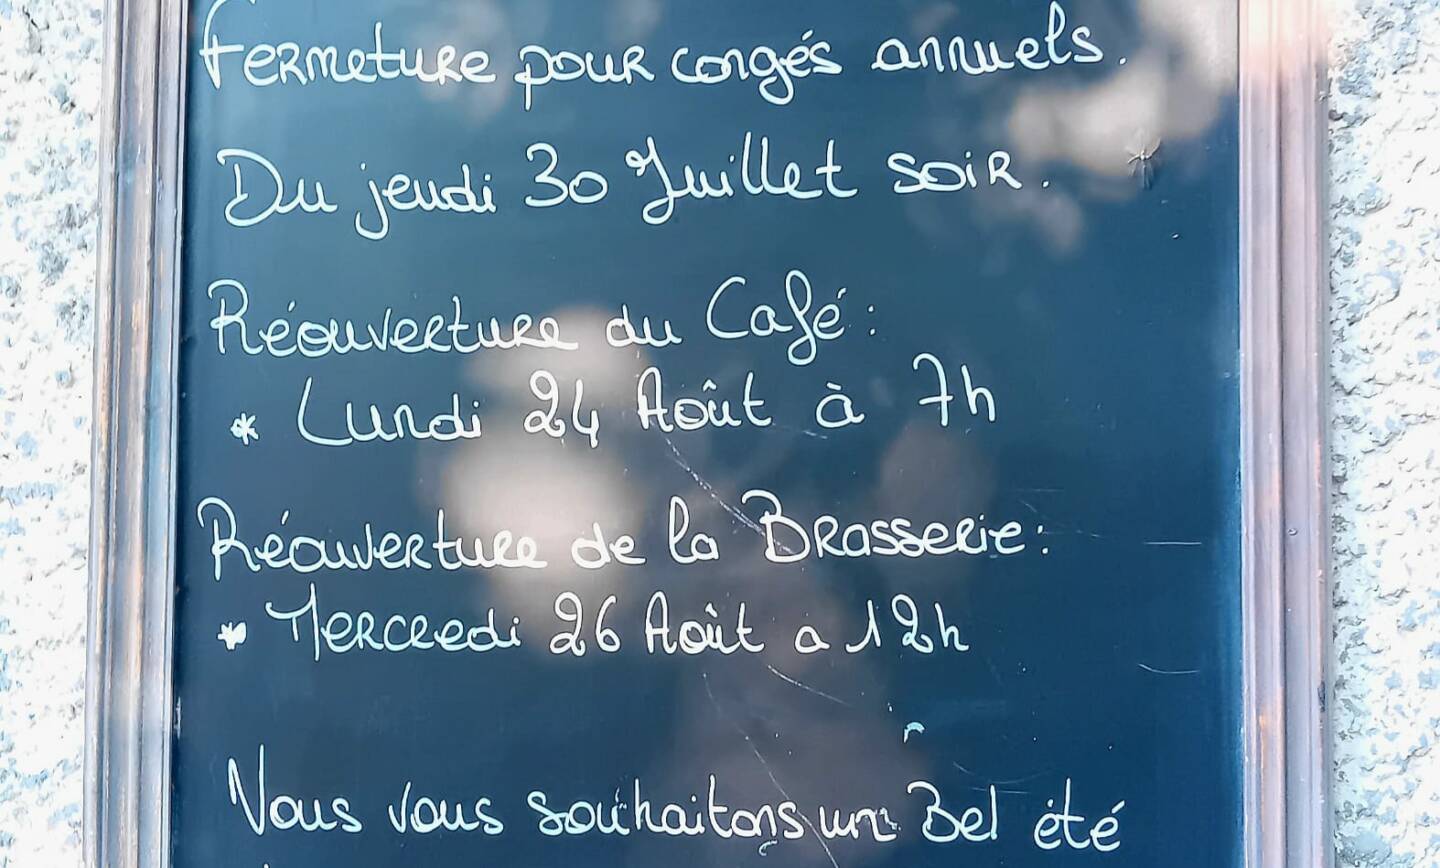 Fermeture pour congés annuels.
Du jeudi 30 Juillet soir.
Réouverture du Café :
* Lundi 24 Août à 7h
Réouverture de la Brasserie :
* Mercredi 26 Août a 12h
Nous vous souhaitons un Bel été